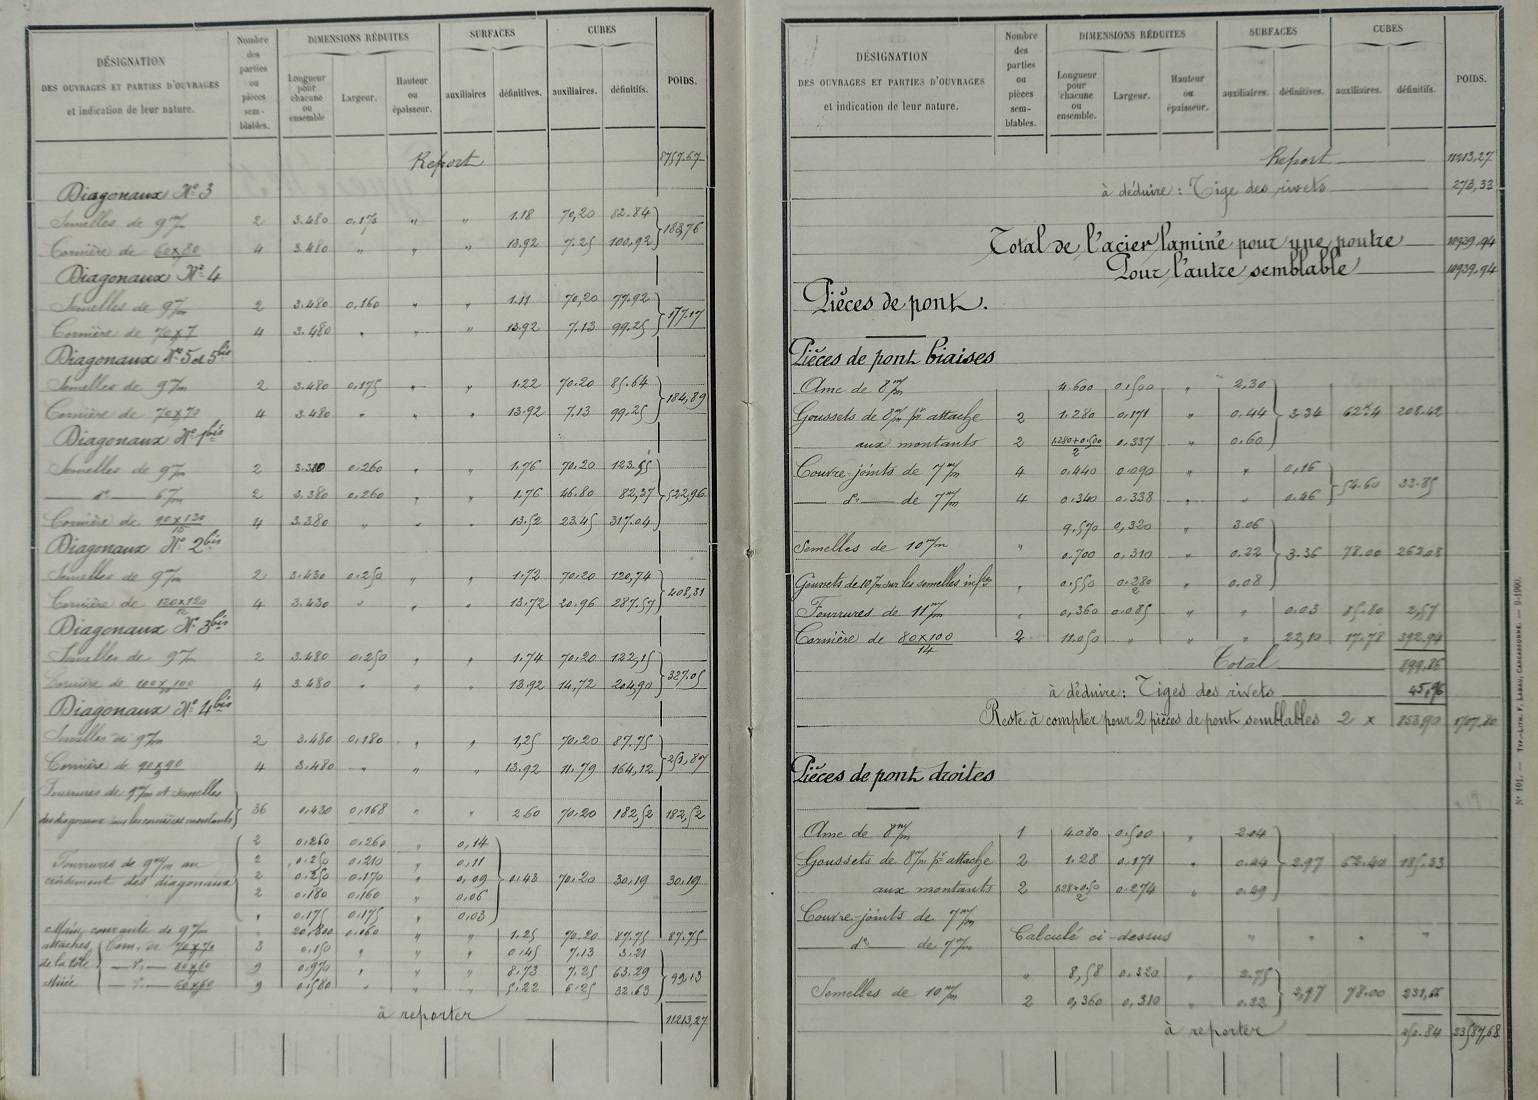 DÉSIGNATION
DES OUVRAGES ET PARTIES D'OUVRAGES
et indication de leur nature.
Nombre des parties ou pièces sem-blables.
DIMENSIONS RÉDUITES
Longueur pour chacune ou ensemble
Largeur.
Hauteur ou épaisseur.
SURFACES
auxiliaires. définitives.
CUBES
auxiliaires. définitifs.
POIDS.
Report 8757.67
Diagonaux No 3
Semelles de 9 m/m 2 3.480 0,170 " " 1.18 70,20 82.84
183,76
Cornière de 60x80 4 3.480 " " 13.92 7.25 100,92
Diagonaux No 4
Semelles de 9 m/m 2 3.480 0,160 " " 1.11 70,20 77.92
177.17
Cornière de 70x7 4 3.480 " " " 13.92 7.13 99.25
Diagonaux Nos 5 et 5bis
Semelles de 9 m/m 2 3.480 0,175 " " 1.22 70.20 85.64
184,89
Cornière de 70x70 4 3.480 " " " 13.92 7.13 99.25
Diagonaux No 1bis
Semelles de 9 m/m 2 3.380 0,260 " " 1.76 70.20 123.55
— do — 6 m/m 2 3.380 0,260 " " 1.76 46.80 82,37 522,96
Cornière de 90x130 4 3.380 " " " 13.52 23.45 317.04
Diagonaux No 2bis
Semelles de 9 m/m 2 3.430 0,250 " " 1.72 70.20 120,74
408,31
Cornière de 120x120 4 3.430 " " " 13.72 20.96 287.57
Diagonaux No 3bis
Semelles de 9 m/m 2 3.480 0,250 " " 1.74 70.20 122,15
327.05
Cornière de 100x100 4 3.480 " " " 13.92 14,72 204,90
Diagonaux No 4bis
Semelles de 9 m/m 2 3.480 0,180 " " 1,25 70.20 87.75
251,87
Cornière de 90x90 4 3.480 " " " 13.92 11.79 164,12
Fourrures de 9 m/m et semelles
des diagonaux sous les cornières montants 36 0.430 0,168 " " 2.60 70.20 182,52 182,52
2 0,260 0,260 " 0,14
Fourrures de 9 m/m au 2 0,250 0,210 " 0,11
croisement des diagonaux 2 0.250 0,170 " 0,09 0,43 70.20 30,19 30.19
2 0,180 0,160 " 0,06
" 0,175 0,175 " 0,03
Main courante de 9 m/m " 20,800 0,060 " " 1.25 70.20 87.75 87.75
attaches Corn. de 70x70 3 0,150 " " " 0,45 7.13 3.21
de la tôle — do — 80x60 9 0,970 " " " 8.73 7,25 63.29 99,13
striée — do — 60x60 9 0,580 " " " 5.22 6.25 32.63
à reporter 11213,27
DÉSIGNATION
DES OUVRAGES ET PARTIES D'OUVRAGES
et indication de leur nature.
Nombre des parties ou pièces sem-blables.
DIMENSIONS RÉDUITES
Longueur pour chacune ou ensemble.
Largeur.
Hauteur ou épaisseur.
SURFACES
auxiliaires. définitives.
CUBES
auxiliaires. définitifs.
POIDS.
Report 11213,27
à déduire : Tige des rivets 273,33
Total de l'acier laminé pour une poutre 10939.94
Pour l'autre semblable 10939.94
Pièces de pont.
Pièces de pont biaises
Ame de 8 m/m 4.600 0,500 " 2,30
Goussets de 8 m/m pr attache 2 1.280 0,171 " 0.44 3.34 62.4 208.42
aux montants 2 1.280+0.500/2 0.337 " 0,60
Couvre-joints de 7 m/m 4 0,440 0.090 " " 0,16
54.60 33.85
— do — de 7 m/m 4 0,340 0,338 " " 0.46
9,570 0,320 " 3.06
Semelles de 10 m/m " 0.700 0,310 " 0.22 3.36 78.00 262,08
Goussets de 10 m/m sur les semelles infres " 0,550 0,280 " 0,08
Fourrures de 11 m/m " 0,360 0,085 " " 0,03 85.80 2,57
Cornière de 80x100/14 2 11.050 " " " 22,10 17.78 392.94
Total 899.86
à déduire : Tiges des rivets 45,96
Reste à compter pour 2 pièces de pont semblables 2 x 853,90 1707.80
Pièces de pont droites
Ame de 8 m/m 1 4.080 0,500 " 2.04
Goussets de 8 m/m pr attache 2 1.28 0,171 " 0.44 2.97 62.40 185.33
aux montants 2 1.28+0.50/2 0,274 " 0.49
Couvre-joints de 7 m/m
Calculé ci-dessus " " " "
— do — de 7 m/m
" 8,58 0,320 " 2.75
Semelles de 10 m/m 2,97 78.00 231,66
2 0,360 0,310 " 0.22
à reporter 23587,68
No 101. — TYP.-LITH. P. LABAU, CARCASSONNE. — 9-1900.